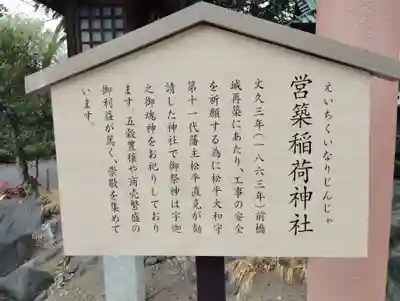 えいちくいなりじんじゃ
営築稲荷神社
文久三年（一八六三年）前橋
城再築にあたり、工事の安全
を祈願する為に松平大和守
第十一代藩主松平直克が勧
請した神社で御祭神は宇迦
之御魂神をお祀りしており
ます。五穀豊穣や商売繁盛の
御利益が篤く、崇敬を集めて
います。